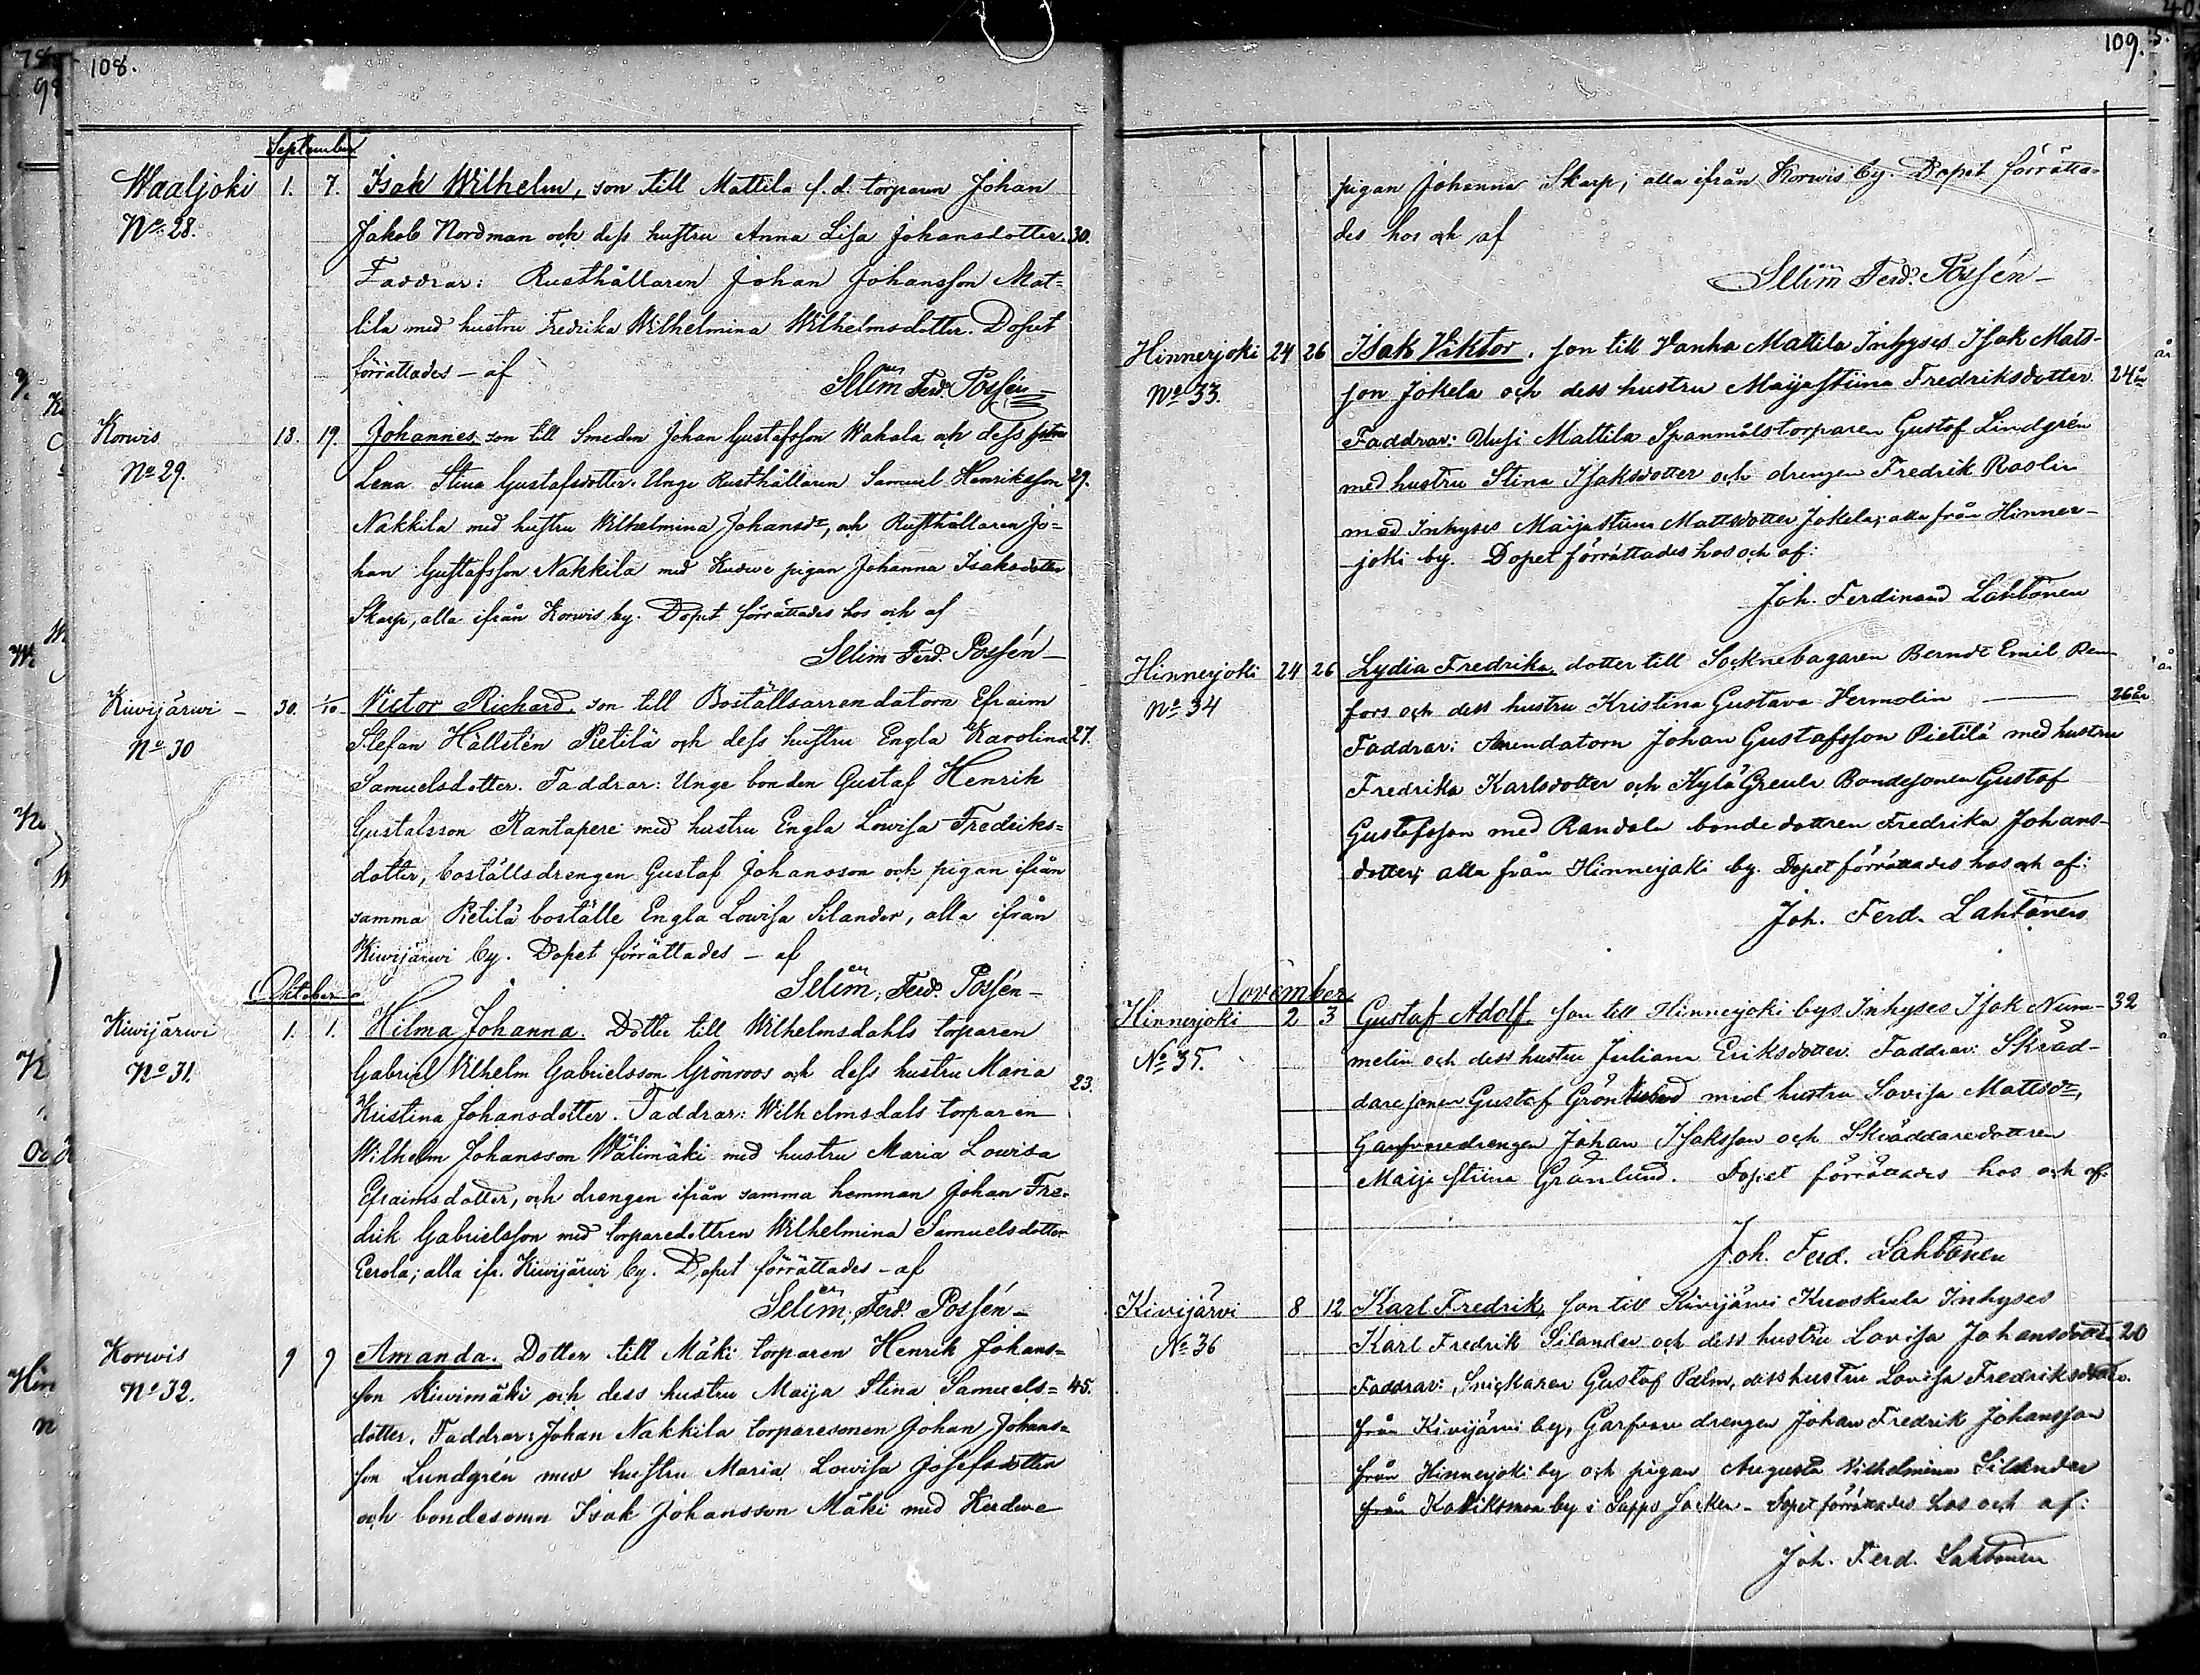 108.
September
Waaljoki 1. 7. Isak Wilhelm, son till Mattila f. d. torparen Johan
No 28. Jakob Nordman och dess hustru Anna Lisa Johansdotter. 30.
Faddrar: Rusthållaren Johan Johansson Mat=
tila med hustru Fredrika Wilhelmina Wilhelmsdotter. Dopet
förrättades – af
Selim Ferd. Possén –
Korwis 13. 19. Johannes son till Smeden Johan Gustafsson Wahala och dess hustru
No 29. Lena Stina Gustafsdotter. Unge Rusthållaren Samuel Henriksson 29.
Nakkila med hustru Wilhelmina Johansdr, och Rusthållaren Jo=
han Gustafsson Nakkila med pigan Johanna Isaksdotter
Skarp, alla ifrån Korwis by. Dopet förrättades hos och af
Selim Ferd. Possén –
Kiwijärwi – 30. 1/10 Victor Richard, son till Boställsarrendatorn Efraim
No 30 Stefan Hällstén Pietilä och dess hustru Engla Karolina 27.
Samuelsdotter. Faddrar: Unge bonden Gustaf Henrik
Gustafsson Rantapere med hustru Engla Lowisa Fredriks=
dotter, boställsdrengen Gustaf Johansson och pigan ifrån
samma Pietilä boställe Engla Lowisa Silander, alla ifrån
Kiwijärwi by. Dopet förrättades – af
Selim, Ferd. Possén –
Oktober
Kiwijärwi 1. 1. Hilma Johanna. Dotter till Wilhelmsdahls torparen
No 31. Gabriel Wilhelm Gabrielsson Grönroos och dess hustru Maria 23.
Kristina Johansdotter. Faddrar: Wilhelmsdals torparen
Wilhelm Johansson Wälimäki med hustru Maria Lowisa
Efraimsdotter, och drengen ifrån samma hemman Johan Fre-
drik Gabrielsson med torparedottren Wilhelmina Samuelsdotter
Eerola; alla ifr. Kiwijärwi by. Dopet förrättades – af
Selim, Ferd. Possén –
Korwis 9 9 Amanda. Dotter till Mäki torparen Henrik Johans=
No 32. son Kiwimäki och dess hustru Maija Stina Samuels= 45.
dotter. Faddrar: Johan Nakkila torparesonen Johan Johans=
son Lundgrén med hustru Maria Lowisa Josefsdotter
och bondesonen Isak Johansson Mäki med
109.
pigan Johanna Skarp, alla ifrån Korwis by. Dopet förrätta=
des hos och af
Selim Ferd. Possén –
Hinnerjoki 24 26 Isak Viktor, son till Vanha Mattila Inhyses Isak Mats-
No 33. son Jokela och dess hustru Maija Stiina Fredriksdotter 24 år
Faddrar: Uusi Mattila Spanmålstorparen Gustof Lindgrén
med hustru Stina Isaksdotter och drengen Fredrik Roslin
med Inhyses Maija Stiina Mattsdotter Jokela; alla från Hinner-
joki by. Dopet förrättades hos och af:
Joh. Ferdinand Lahtonen
Hinnerjoki 24 26 Lydia Fredrika, dotter till Socknebagaren Berndt Emil Ren-
No 34 fors och dess hustru Kristina Gustava Vermolin — 26 år
Faddrar: Arrendatorn Johan Gustafsson Pietilä med hustru
Fredrika Karlsdotter och Kylä Greula Bondesonen Gustof
Gustafsson med Randala bondedottren Fredrika Johans-
dotter; alla från Hinnerjoki by. Dopet förrättades hos och af:
Joh. Ferd. Lahtonen
November
Hinnerjoki 2 3 Gustaf Adolf. Son till Hinnerjoki bys Inhyses Isak Num- 32
No 35. melin och dess hustru Juliana Eriksdotter. Faddrar: Skräd-
daresonen Gustaf Grönlund med hustru Lovisa Mattsdr,
Garfvaredrengen Johan Isaksson och Skräddaredottren
Maija Stiina Grönlund. Dopet förrättades hos och af
Joh. Ferd. Lahtonen
Kivijärvi 8 12 Karl Fredrik, Son till Kivijärvi Kuoskula Inhyses
No 36 Karl Fredrik Silander och dess hustru Lovisa Johansdott. 20
Faddrar: Snickaren Gustaf Palm, dess hustru Lovisa Fredriksdott.
från Kivijärvi by, Garfvare drengen Johan Fredrik Johansson
från Hinnerjoki by och pigan Augusta Vilhelmina Silander
från by i Lappo Socken. Dopet förrättades hos och af:
Joh. Ferd. Lahtonen